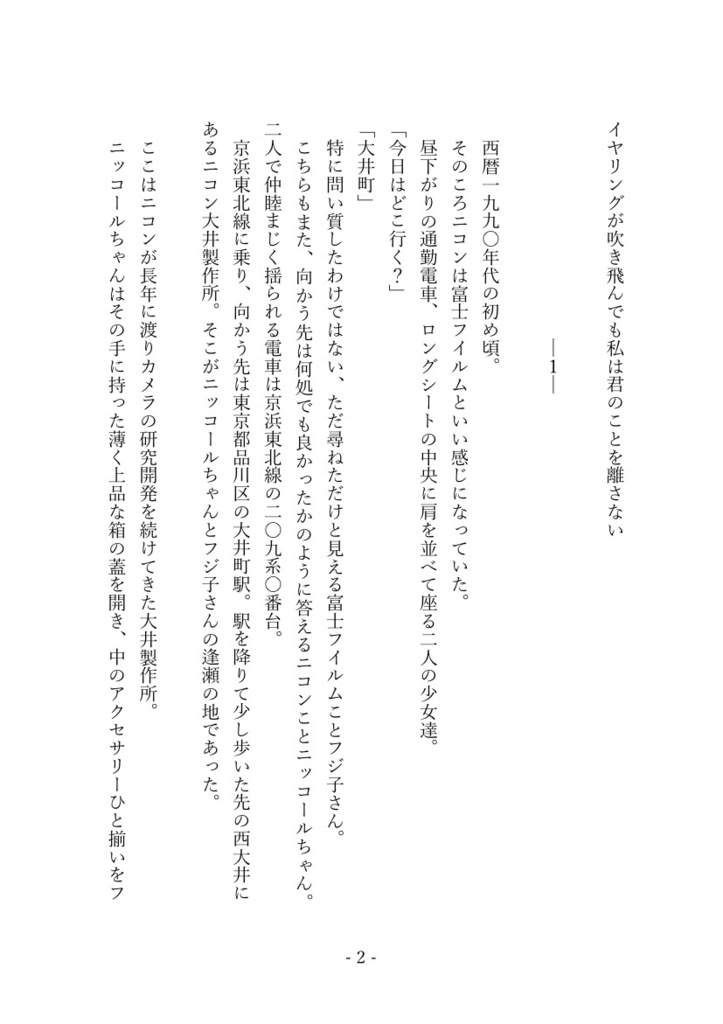 イヤリングが吹き飛んでも私は君のことを離さない
―1―
西暦一九九〇年代の初め頃。
そのころニコンは富士フイルムといい感じになっていた。
昼下がりの通勤電車、ロングシートの中央に肩を並べて座る二人の少女達。
「今日はどこ行く?」
「大井町」
特に問い質したわけではない、ただ尋ねただけと見える富士フイルムことフジ子さん。
こちらもまた、向かう先は何処でも良かったかのように答えるニコンことニッコールちゃん。
二人で仲睦まじく揺られる電車は京浜東北線の二〇九系〇番台。
京浜東北線に乗り、向かう先は東京都品川区の大井町駅。駅を降りて少し歩いた先の西大井に
あるニコン大井製作所。そこがニッコールちゃんとフジ子さんの逢瀬の地であった。
ここはニコンが長年に渡りカメラの研究開発を続けてきた大井製作所。
ニッコールちゃんはその手に持った薄く上品な箱の蓋を開き、中のアクセサリーひと揃いをフ
- 2 -